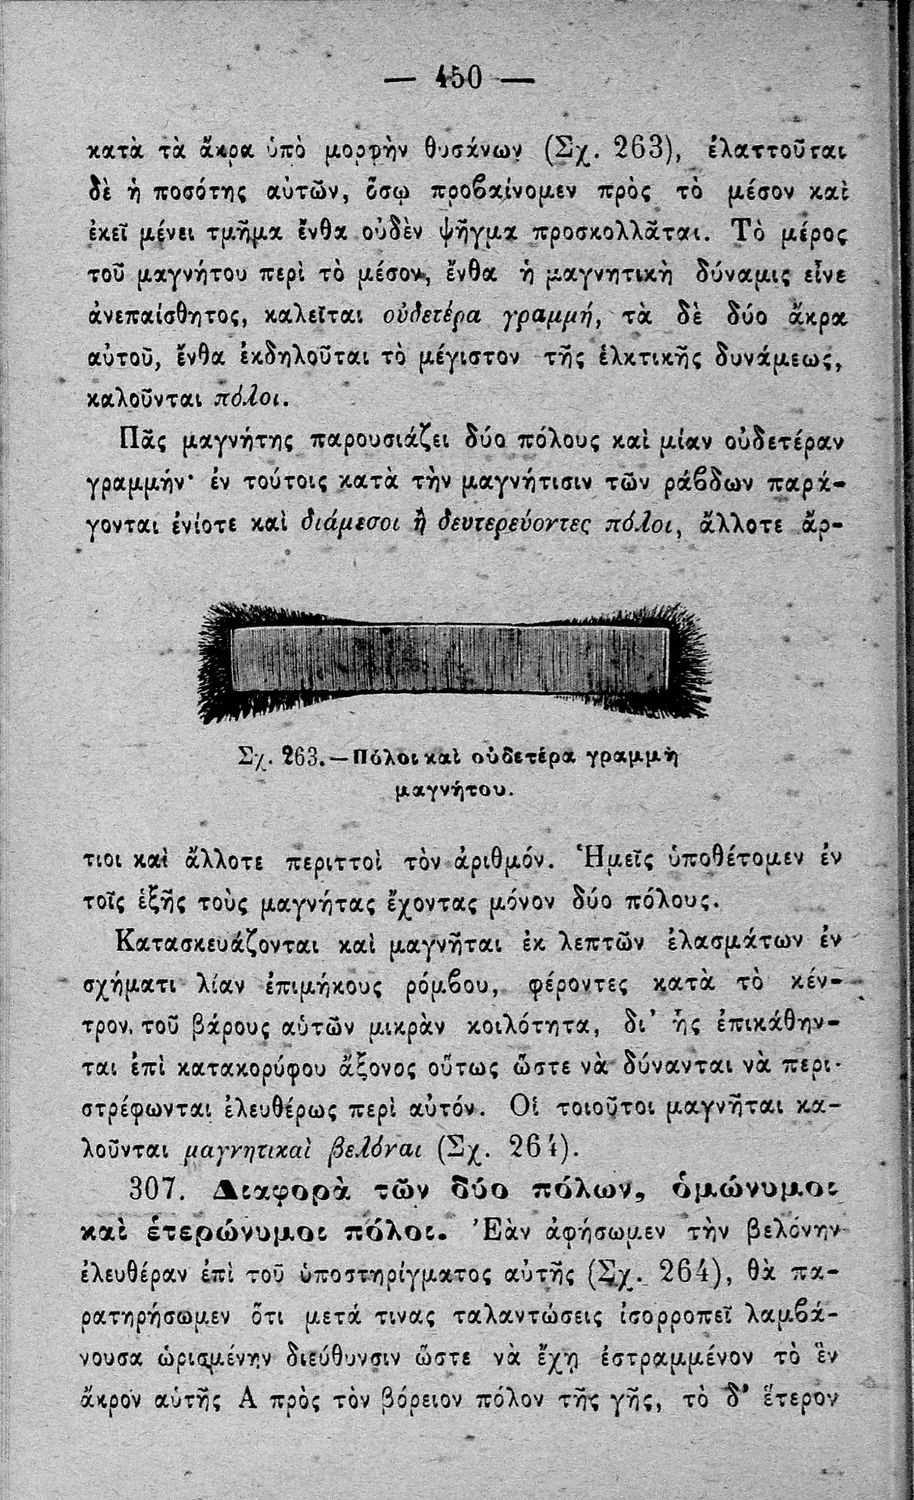 — 450 —
κατὰ τὰ ἄκρα ὑπὸ μορφὴν θυσάνων (Σχ. 263), ἐλαττοῦται
δὲ ἡ ποσότης αὐτῶν, ὅσῳ προβαίνομεν πρὸς τὸ μέσον καὶ
ἐκεῖ μένει τμῆμα ἔνθα οὐδὲν ψῆγμα προσκολλᾶται. Τὸ μέρος
τοῦ μαγνήτου περὶ τὸ μέσον, ἔνθα ἡ μαγνητικὴ δύναμις εἶνε
ἀνεπαίσθητος, καλεῖται οὐδετέρα γραμμή, τὰ δὲ δύο ἄκρα
αὐτοῦ, ἔνθα ἐκδηλοῦται τὸ μέγιστον τῆς ἑλκτικῆς δυνάμεως,
καλοῦνται πόλοι.
Πᾶς μαγνήτης παρουσιάζει δύο πόλους καὶ μίαν οὐδετέραν
γραμμήν· ἐν τούτοις κατὰ τὴν μαγνήτισιν τῶν ράβδων παρά-
γονται ἐνίοτε καὶ διάμεσοι ἢ δευτερεύοντες πόλοι, ἄλλοτε ἄρ-
Σχ. 263.— Πόλοι καὶ οὐδετέρα γραμμὴ
μαγνήτου.
τιοι καὶ ἄλλοτε περιττοὶ τὸν ἀριθμόν. Ἡμεῖς ὑποθέτομεν ἐν
τοῖς ἑξῆς τοὺς μαγνήτας ἔχοντας μόνον δύο πόλους.
Κατασκευάζονται καὶ μαγνῆται ἐκ λεπτῶν ἐλασμάτων ἐν
σχήματι λίαν ἐπιμήκους ρόμβου, φέροντες κατὰ τὸ κέν-
τρον τοῦ βάρους αὑτῶν μικρὰν κοιλότητα, δι' ἧς ἐπικάθην-
ται ἐπὶ κατακορύφου ἄξονος οὕτως ὥστε νὰ δύνανται νὰ περι-
στρέφωνται ἐλευθέρως περὶ αὐτόν. Οἱ τοιοῦτοι μαγνῆται κα-
λοῦνται μαγνητικαὶ βελόναι (Σχ. 264).
307. Διαφορὰ τῶν δύο πόλων, ὁμώνυμοι
καὶ ἑτερώνυμοι πόλοι. Ἐὰν ἀφήσωμεν τὴν βελόνην
ἐλευθέραν ἐπὶ τοῦ ὑποστηρίγματος αὐτῆς (Σχ. 264), θὰ πα-
ρατηρήσωμεν ὅτι μετά τινας ταλαντώσεις ἰσορροπεῖ λαμβά-
νουσα ὡρισμένην διεύθυνσιν ὥστε νὰ ἔχῃ ἐστραμμένον τὸ ἓν
ἄκρον αὑτῆς Α πρὸς τὸν βόρειον πόλον τῆς γῆς, τὸ δ' ἕτερον